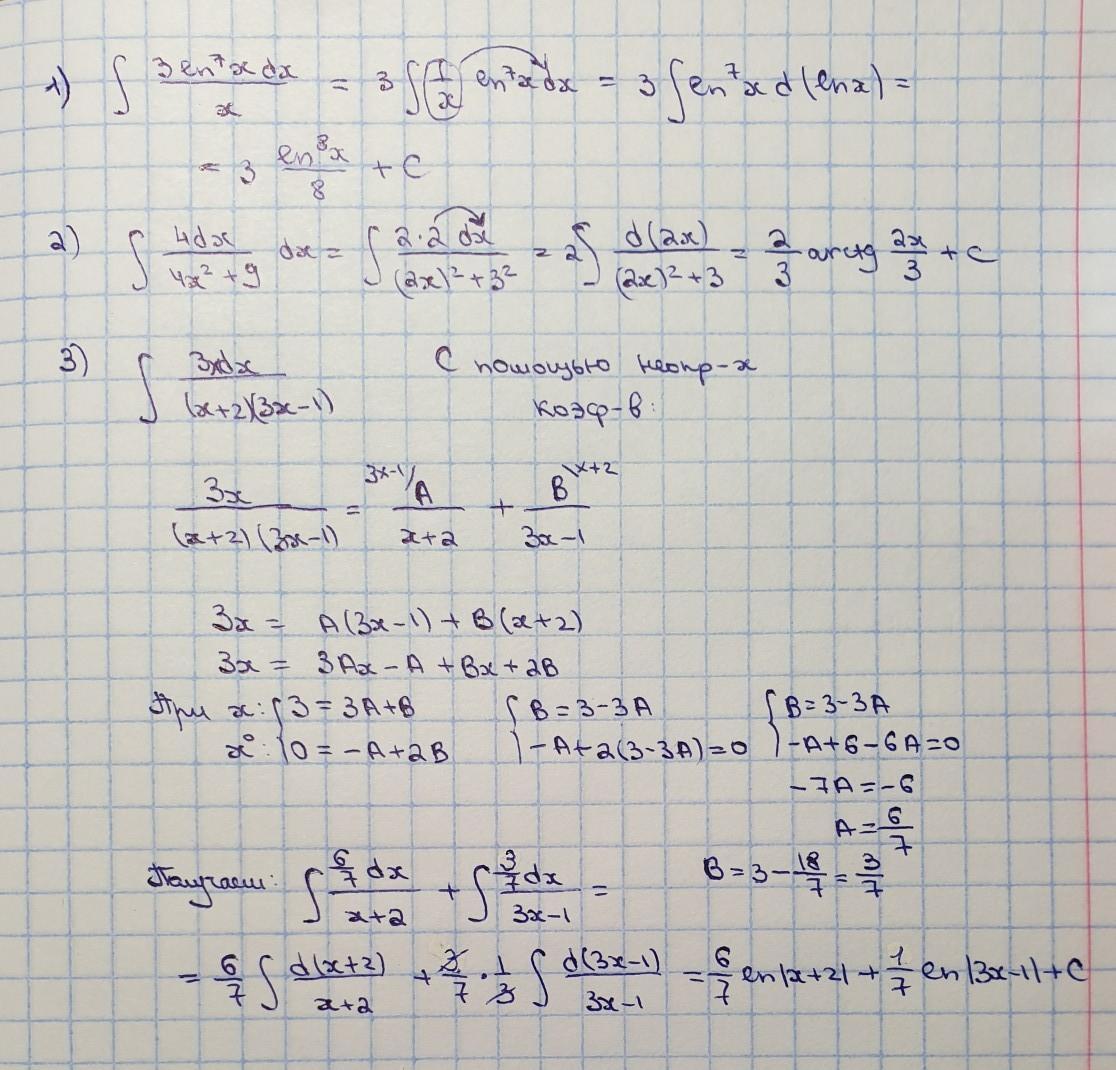 1) ∫ 3 ln⁷x dx / x = 3 ∫ (1/x) ln⁷x dx = 3 ∫ ln⁷x d(lnx) =
= 3 ln⁸x / 8 + C
2) ∫ 4dx / (4x² + 9) dx = ∫ 2·2 dx / ((2x)² + 3²) = 2 ∫ d(2x) / ((2x)² + 3) = 2/3 arctg 2x/3 + C
3) ∫ 3xdx / (x+2)(3x-1) С помощью неопр-х
коэф-в:
3x / (x+2)(3x-1) = ³ˣ⁻¹/A / (x+2) + B\ˣ⁺² / (3x-1)
3x = A(3x-1) + B(x+2)
3x = 3Ax - A + Bx + 2B
При x: { 3 = 3A+B { B = 3-3A { B = 3-3A
x⁰: { 0 = -A+2B { -A+2(3-3A)=0 { -A+6-6A=0
-7A = -6
A = 6/7
Получаем: ∫ 6/7 dx / (x+2) + ∫ 3/7 dx / (3x-1) = B = 3 - 18/7 = 3/7
= 6/7 ∫ d(x+2) / (x+2) + 3/7 · 1/3 ∫ d(3x-1) / (3x-1) = 6/7 ln|x+2| + 1/7 ln|3x-1| + C